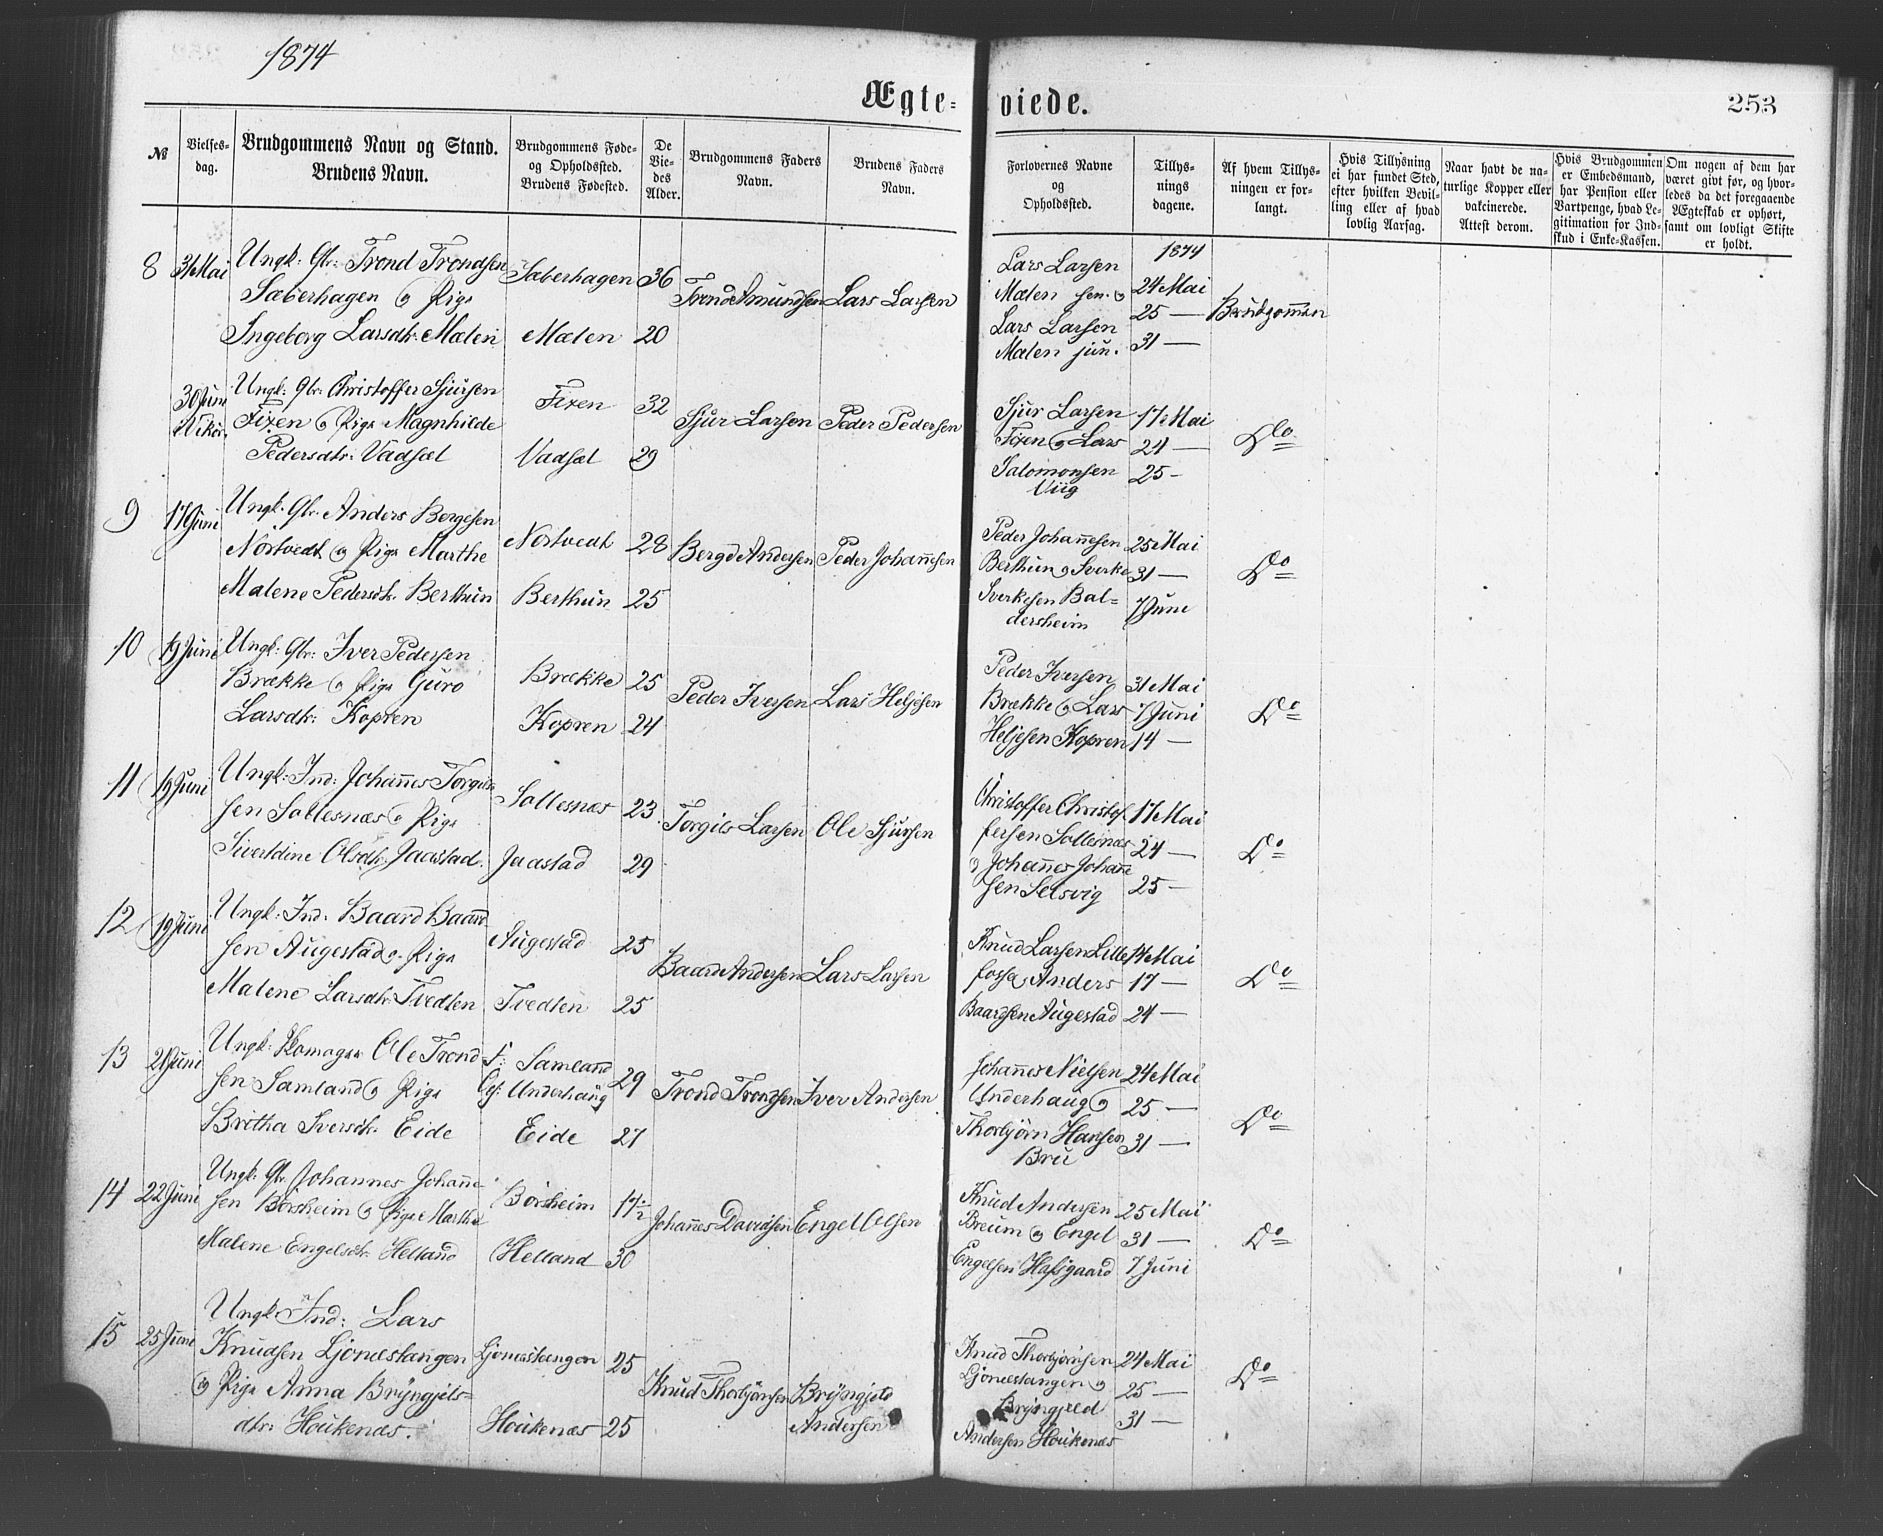 1874
Ægte-
viede.
253
№
Vielses-
dag.
Brudgommens Navn og Stand.
Brudens Navn.
Brudgommens Føde-
og Opholdssted.
Brudens Fødested.
De
Vie-
des
Alder.
Brudgommens Faders
Navn.
Brudens Faders
Navn.
Forlovernes Navne
og
Opholdssted.
Tillys-
nings
dagene.
Af hvem Tillys-
ningen er for-
langt.
Hvis Tillysning
ei har fundet Sted,
efter hvilken Bevil-
ling eller af hvad
lovlig Aarsag.
Naar havt de na-
turlige Kopper eller
vakcinerede.
Attest derom.
Hvis Brudgommen
er Embedsmand,
har Pension eller
Vartpenge, hvad Le-
gitimation for Ind-
skud i Enke-Kassen.
Om nogen af dem har
været givt før, og hvor-
ledes da det foregaaende
Ægteskab er ophørt,
samt om lovligt Skifte
er holdt.
8 31 Mai
Ungk: Gbr: Trond Trondsen
Sæberhagen og Pige
Ingeborg Larsdtr. Mælen
Sæberhagen 36
Mælen 20
Trond Amundsen
Lars Larsen
Lars Larsen
Mælen sen. og
Lars Larsen
Mælen jun.
1874
24 Mai
25 —
31 —
Brudgommen
30 Juni
i Vikør.
Ungk: Gbr: Christoffer Sjursen
Fixen og Pige Magnhilde
Pedersdtr: Vadsæl
Fixen 32
Vadsæl 29
Sjur Larsen
Peder Pedersen
Sjur Larsen
Fixen og Lars
Salomonsen
Viig
17 Mai
24 —
25 —
Do
9 17 Juni
Ungk. Gbr. Anders Bergesen
Nortvedt og Pige Marthe
Malene Pedersdtr. Berthun
Nortvedt 28
Berthun 25
Berge Andersen
Peder Johannesen
Peder Johannesen
Berthun og Sverke
Sverkesen Bal-
dersheim
25 Mai
31 —
7 Juni
Do
10 19 Juni
Ungk: Gbr: Iver Pedersen
Brække og Pige Guro
Larsdtr: Kopren
Brække 25
Kopren 24
Peder Iversen
Lars Heljesen
Peder Iversen
Brække og Lars
Heljesen Kopren
31 Mai
7 Juni
14 —
Do
11 19 Juni
Ungk: Ind: Johannes Torgils
sen Sollesnæs og Pige
Siverldine Olsdtr. Jaastad.
Sollesnæs 23
Jaastad 29
Torgils Larsen
Ole Sjursen
Christoffer Christof
fersen Sollesnæs
og Johannes Johanne
sen Selsvig
17 Mai
24 —
25 —
Do
12 19 Juni
Ungk: Ind. Baard Baard
sen Augestad og Pige
Malene Larsdtr. Tvedten
Augestad 25
Tvedten 25
Baard Andersen
Lars Larsen
Knud Larsen Lille
fosse og Anders
Baardsen Augestad
14 Mai
17 —
24 —
Do
13 21 Juni
Ungk: Skomager Ole Trond
sen Samland og Pige
Britha Iversdtr. Eide
F: Samland
Underhaug 29
Eide 27
Trond Trondsen
Iver Andersen
Johannes Nielsen
Underhaug og
Thorbjørn Hansen
Bru
24 Mai
25 —
31 —
Do
14 22 Juni
Ungk. Gbr. Johannes Johanne
sen Börsheim og Pige Marthe
Malene Engelsdtr. Helland
Börsheim
Helland 30
Johannes Davidsen
Engel Olsen
Knud Andersen
Breum og Engel
Engelsen Hafsgaard
25 Mai
31 —
7 Juni
Do
15 25 Juni
Ungk. Ind: Lars
Knudsen Ljonestangen
og Pige Anna Bryngjels-
dtr: Houkenæs.
Ljonestangen 25
Houkenæs 25
Knud Thorbjörnsen
Bryngjeld
Andersen
Knud Thorbjörnsen
Ljonestangen og
Bryngjeld
Andersen Houkenæs
24 Mai
25 —
31 —
Do